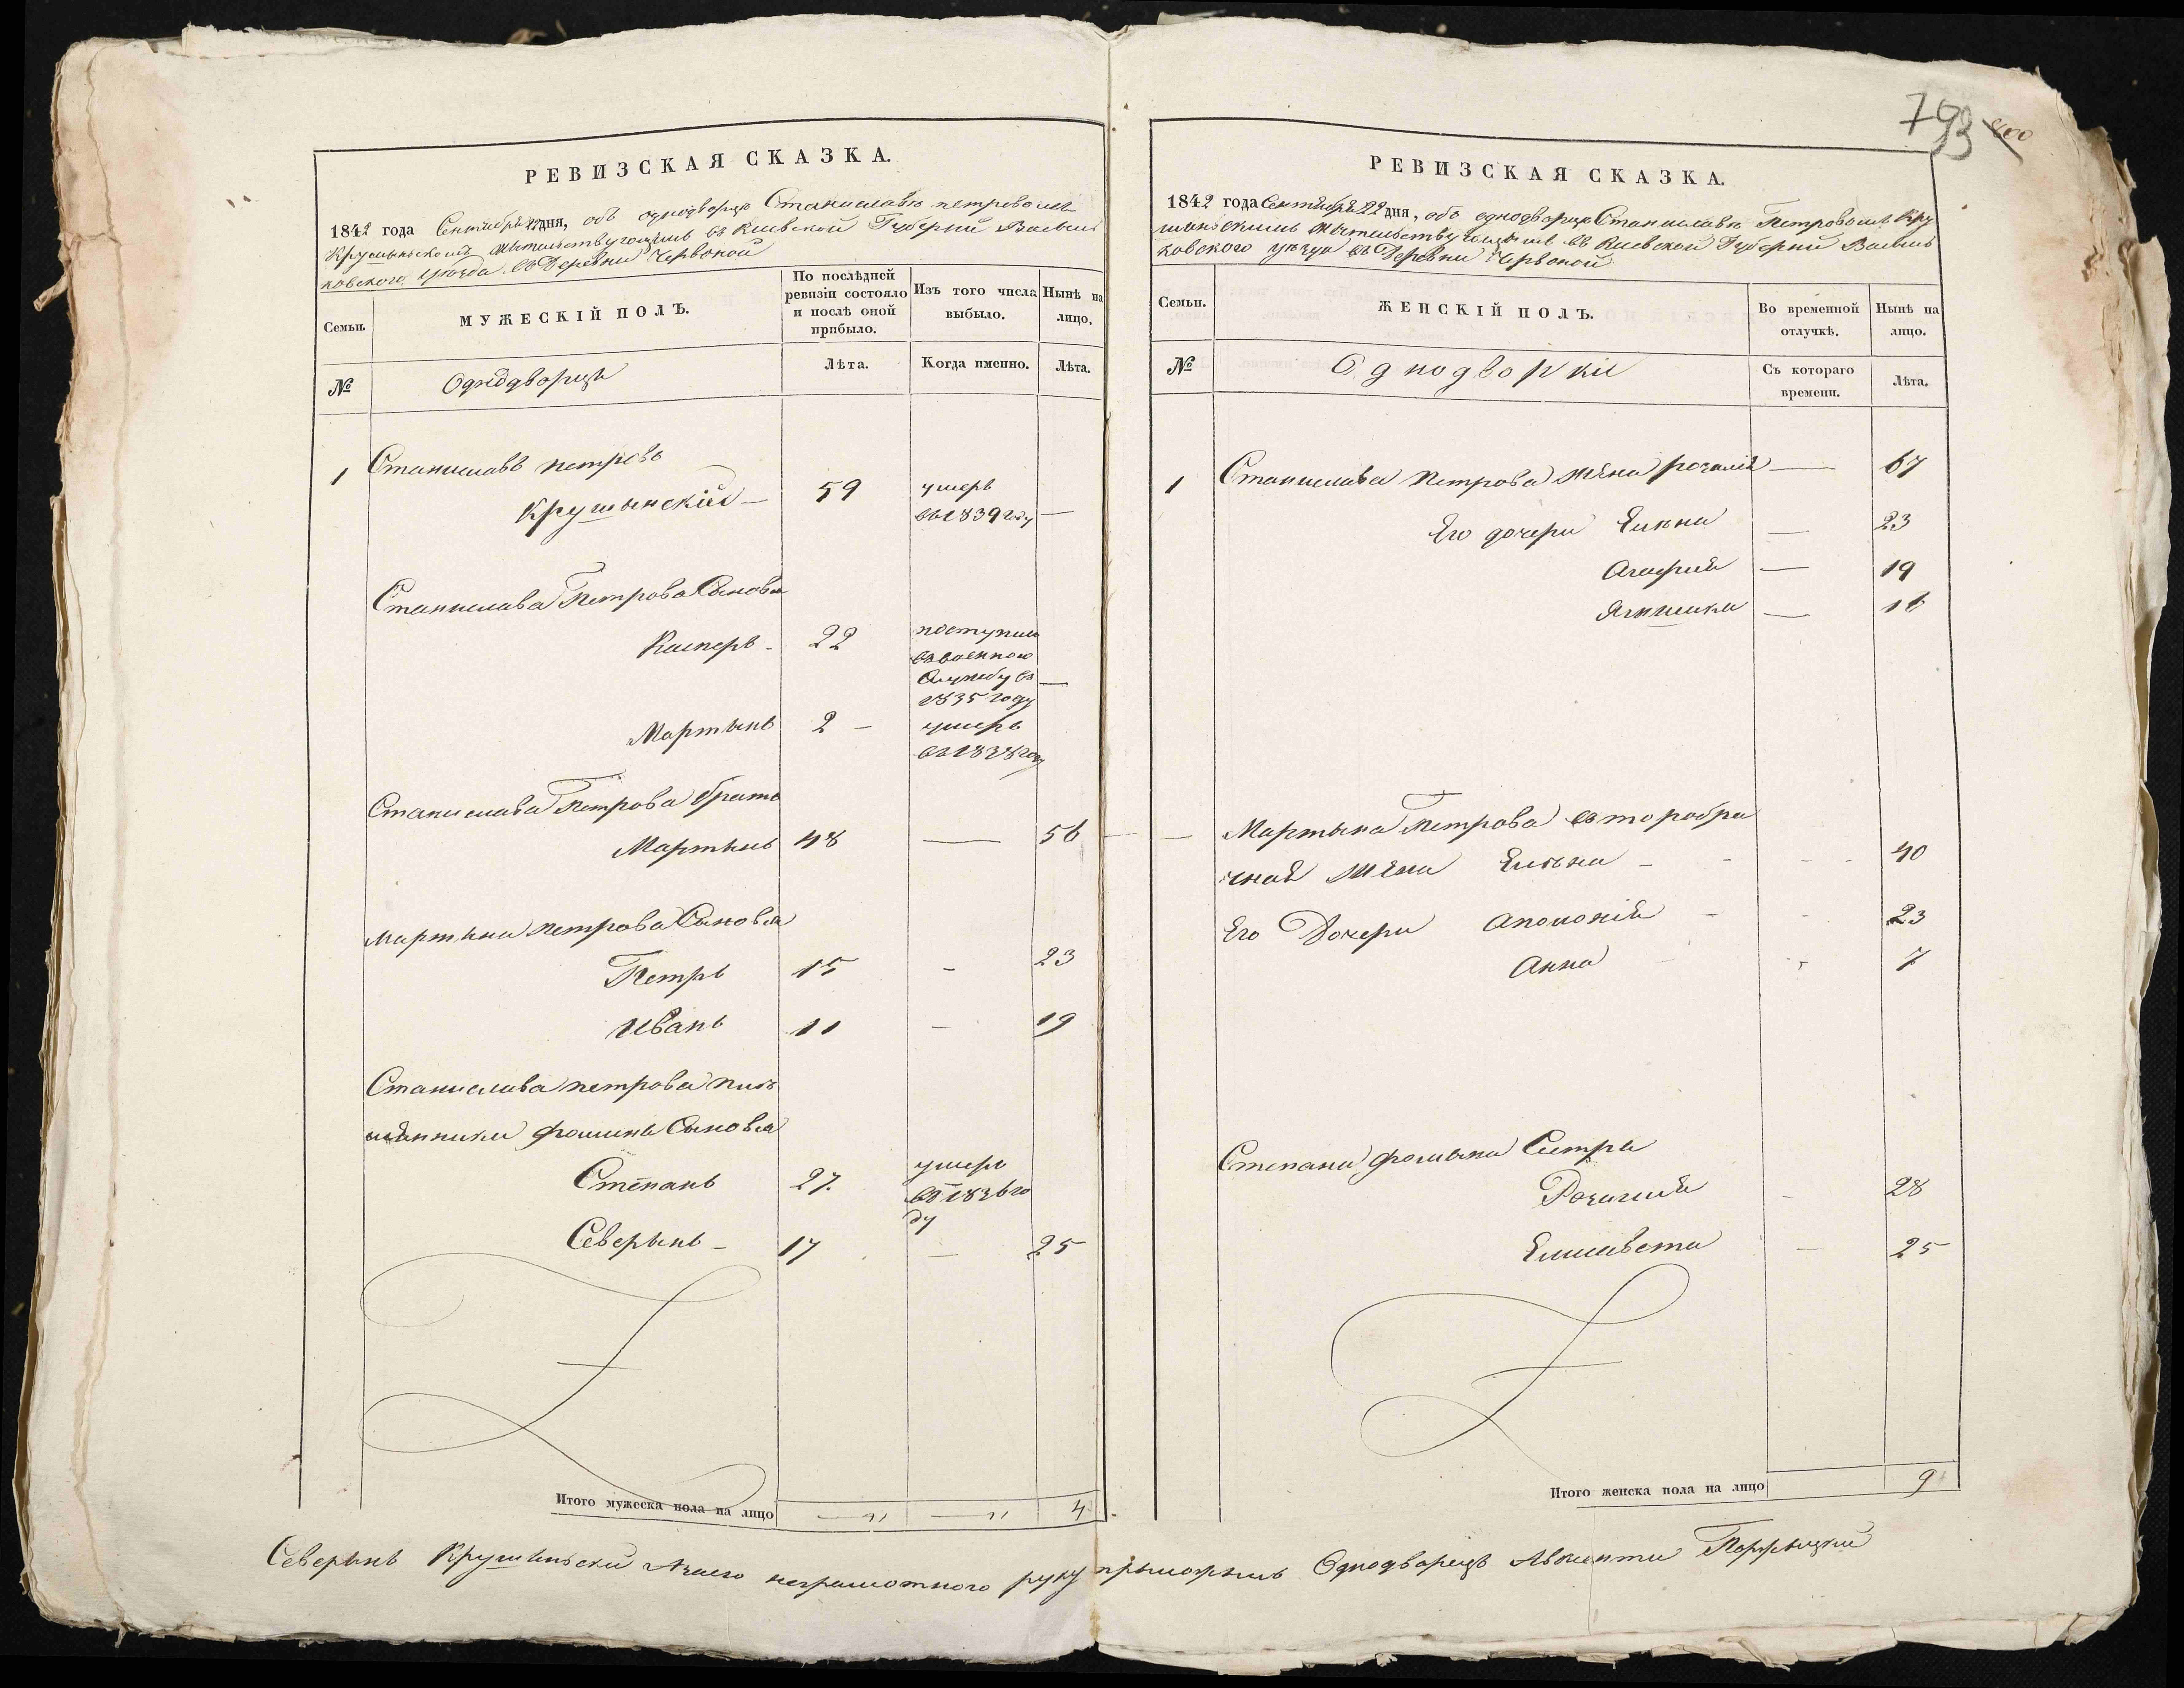 793 800
РЕВИЗСКАЯ СКАЗКА.
1842 года Сентября 22 дня, объ однодворце Станиславе петровомъ
Крушинскомъ жительствующимъ въ Киевской Губерніи Василь
ковского уезда въ Деревни Червоной
Семьи.
МУЖЕСКІЙ ПОЛЪ.
По послѣдней
ревизіи состояло
и послѣ оной
прибыло.
Изъ того числа
выбыло.
Нынѣ на
лицо.
№
Однодворцы
Лѣта.
Когда именно.
Лѣта.
1 Станиславъ петровъ
Крушынскій 59 умеръ
въ 1839 году —
Станислава Петрова Сыновья
Касперъ 22 поступилъ
въ военною
Службу въ —
1835 году
Мартынъ 2 — умеръ
въ 1838 году
Станислава Петрова братъ
Мартынъ 48 — 56
Мартына петрова Сыновья
Петръ 15 - 23
Иванъ 11 — 19
Станислава петрова пле
мянники фомины Сыновья
Степанъ 27. умеръ
въ 1836 го
ду
Северынъ 17 — 25
Итого мужеска пола на лицо — " — " 4
РЕВИЗСКАЯ СКАЗКА.
1842 года Сентября 22 дня, объ однодворце Станиславе Петровомъ Кру
шинскимъ жительствующимъ въ Киевской Губерніи Василь
ковского уезда въ Деревни Червоной
Семьи.
ЖЕНСКІЙ ПОЛЪ.
Во временной
отлучкѣ.
Нынѣ на
лицо.
№
Однодворки
Съ котораго
времени.
Лѣта.
1 Станислава Петрова жена розалія — 67
Его дочери Елена — 23
Агафия — 19
Агнишка — 16
— Мартына Петрова второбра
чная жена Елена - 40
Его Дочери Аполонія - 23
Анна 7
Степана фомина Сестры
Розалия - 28
Елисавета — 25
Итого женска пола на лицо 9
Северынъ Крушинский а за его неграмотного руку приложилъ Однодворецъ